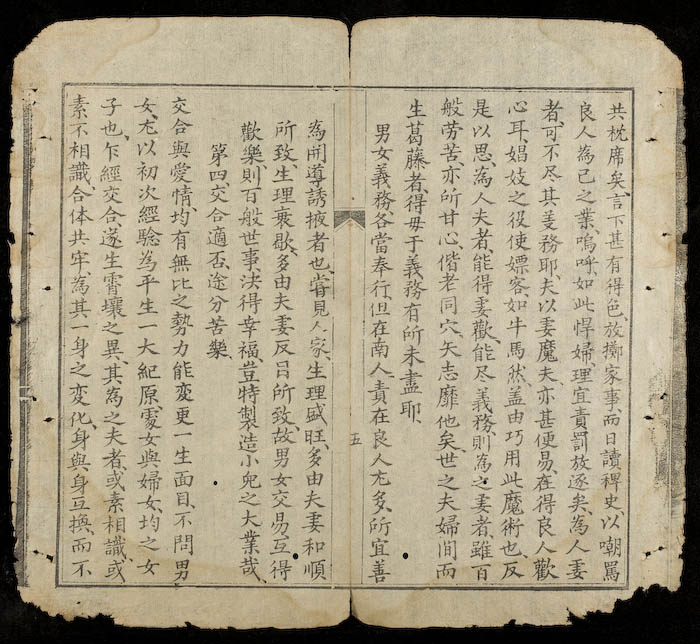 共枕席矣、言下甚有得色、放擲家事、而日讀稗史、以嘲罵
良人為已之業、嗚呼、如此悍婦、理宜責罰放逐矣、為人妻
者、可不尽其義務耶、夫以妻魔夫、亦甚便易、在得良人歡
心耳、娼妓之役使嫖客、如牛馬然、盖由巧用此魔術也、反
是以思、為人夫者、能得妻歡、能尽義務、則為之妻者、雖百
般劳苦、亦所甘心、偕老同穴、矢志靡他矣、世之夫婦間而
生葛藤者、得毋于義務有所未盡耶、
男女義務、各當奉行、但在南人責在良人尤多、所宜善
五
為開導誘掖者也、嘗見人家、生理盛旺、多由夫妻和順
所致、生理衰歇、多由夫妻反目所致、故男女交易、互得
歡樂、則百般世事、決得幸福、豈特製造小兒之大業哉、
第四、交合適否、途分苦樂、
交合與愛情、均有無比之勢力、能変更一生面目、不問男
女、尤以初次經驗為平生一大紀原、處女與婦女、均之女
子也、乍經交合、遂生霄壤之異、其為之夫者、或素相識、或
素不相識、合体共牢、為其一身之変化、身與身互換、而不